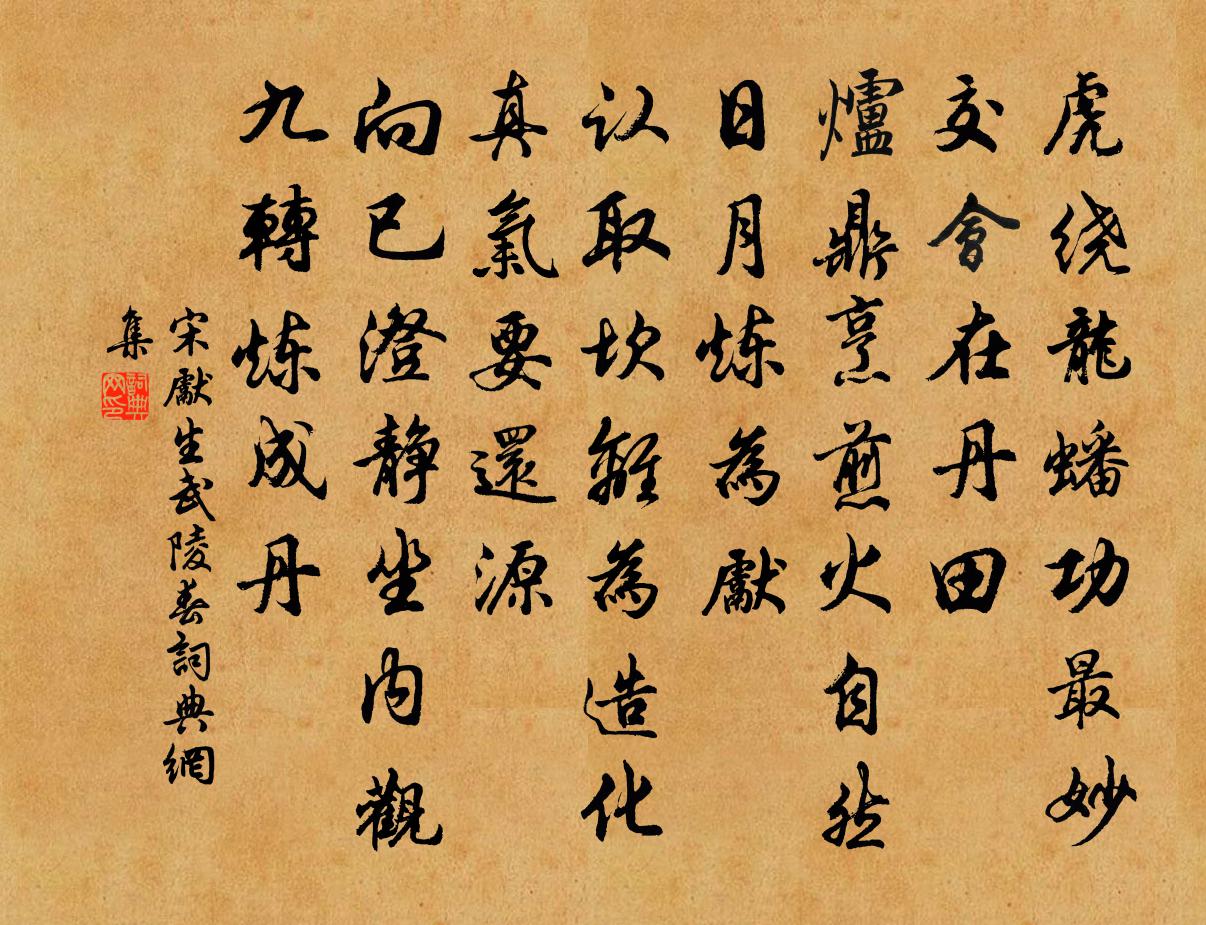 虎绕龍蟠功最妙
交會在丹田
爐鼎烹煎火自然
日月炼為獻
认取坎離為造化
真氣要還源
向已澄靜坐内觀
九轉炼成丹
宋獻生武陵春詞典網
集
詞典
网印